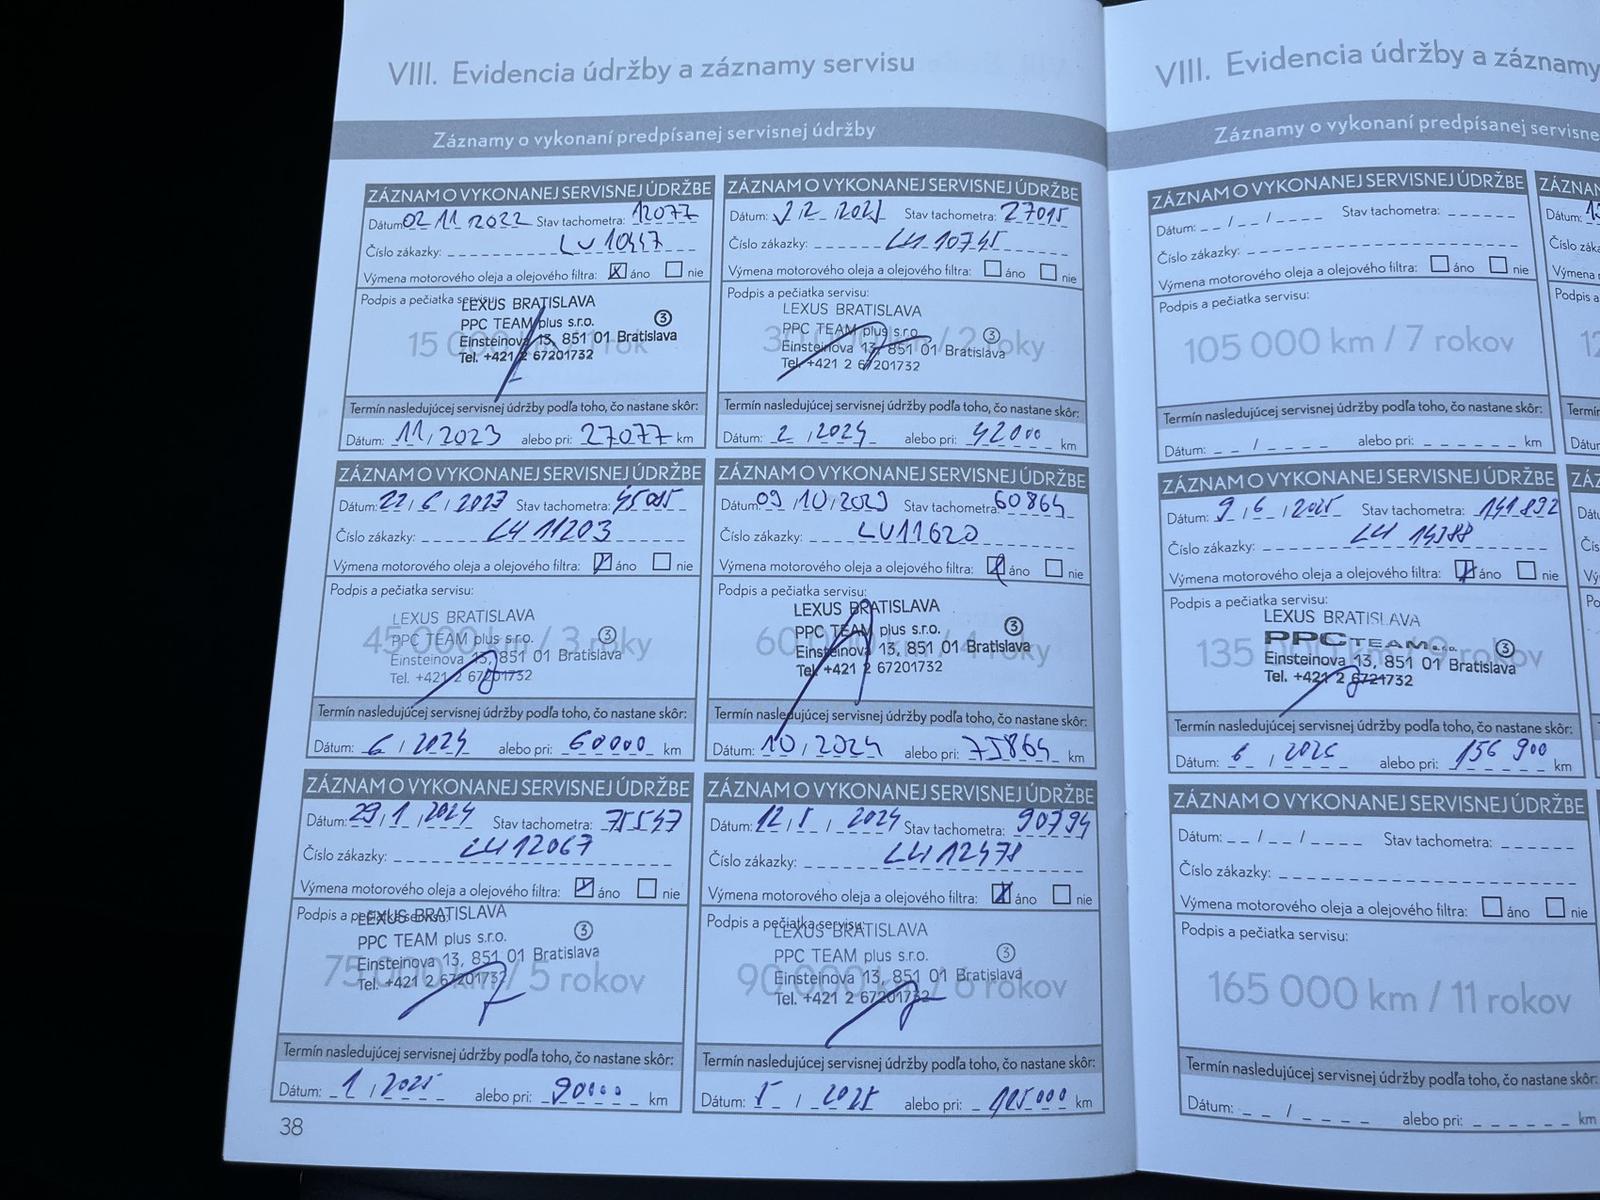 VIII. Evidencia údržby a záznamy servisu
Záznamy o vykonaní predpísanej servisnej údržby
ZÁZNAM O VYKONANEJ SERVISNEJ ÚDRŽBE
Dátum: 02 11 2022 Stav tachometra: 12077
Číslo zákazky: LU 10447
Výmena motorového oleja a olejového filtra: áno nie
Podpis a pečiatka servisu:
LEXUS BRATISLAVA
PPC TEAM plus s.r.o. 3
Einsteinova 13, 851 01 Bratislava
Tel. +421 2 67201732
Termín nasledujúcej servisnej údržby podľa toho, čo nastane skôr:
Dátum: 11 / 2023 alebo pri: 27077 km
ZÁZNAM O VYKONANEJ SERVISNEJ ÚDRŽBE
Dátum: 2 / 2 / Stav tachometra: 27015
Číslo zákazky: LU 10745
Výmena motorového oleja a olejového filtra: áno nie
Podpis a pečiatka servisu:
LEXUS BRATISLAVA
PPC TEAM plus s.r.o. 3
Einsteinova 13, 851 01 Bratislava
Tel. +421 2 67201732
Termín nasledujúcej servisnej údržby podľa toho, čo nastane skôr:
Dátum: 2 / 2024 alebo pri: 42000 km
ZÁZNAM O VYKONANEJ SERVISNEJ ÚDRŽBE
Dátum: 22 / 6 / 2023 Stav tachometra: 45015
Číslo zákazky: LU 11203
Výmena motorového oleja a olejového filtra: áno nie
Podpis a pečiatka servisu:
45 000 km / 3 roky
LEXUS BRATISLAVA
PPC TEAM plus s.r.o. 3
Einsteinova 13, 851 01 Bratislava
Tel. +421 2 67201732
Termín nasledujúcej servisnej údržby podľa toho, čo nastane skôr:
Dátum: 6 / 2024 alebo pri: 60000 km
ZÁZNAM O VYKONANEJ SERVISNEJ ÚDRŽBE
Dátum: 09 / 10 / 2023 Stav tachometra: 60864
Číslo zákazky: LU11620
Výmena motorového oleja a olejového filtra: áno nie
Podpis a pečiatka servisu:
LEXUS BRATISLAVA
PPC TEAM plus s.r.o. 3
Einsteinova 13, 851 01 Bratislava
Tel. +421 2 67201732
Termín nasledujúcej servisnej údržby podľa toho, čo nastane skôr:
Dátum: 10 / 2024 alebo pri: 75864 km
ZÁZNAM O VYKONANEJ SERVISNEJ ÚDRŽBE
Dátum: 29 / 1 / 2024 Stav tachometra: 75547
Číslo zákazky: LU 12067
Výmena motorového oleja a olejového filtra: áno nie
Podpis a pečiatka servisu:
LEXUS BRATISLAVA
PPC TEAM plus s.r.o. 3
Einsteinova 13, 851 01 Bratislava
75 000 km / 5 rokov
Tel. +421 2 67201732
Termín nasledujúcej servisnej údržby podľa toho, čo nastane skôr:
Dátum: 1 / 2025 alebo pri: 90000 km
ZÁZNAM O VYKONANEJ SERVISNEJ ÚDRŽBE
Dátum: 12 / 5 / 2024 Stav tachometra: 90794
Číslo zákazky: LU 12478
Výmena motorového oleja a olejového filtra: áno nie
Podpis a pečiatka servisu:
LEXUS BRATISLAVA
PPC TEAM plus s.r.o. 3
Einsteinova 13, 851 01 Bratislava
90 000 km / 6 rokov
Tel. +421 2 67201732
Termín nasledujúcej servisnej údržby podľa toho, čo nastane skôr:
Dátum: 5 / 2025 alebo pri: 105000 km
38
VIII. Evidencia údržby a záznamy
Záznamy o vykonaní predpísanej
ZÁZNAM O VYKONANEJ SERVISNEJ ÚDRŽBE
Dátum: / / Stav tachometra:
Číslo zákazky:
Výmena motorového oleja a olejového filtra: áno nie
Podpis a pečiatka servisu:
105 000 km / 7 rokov
Termín nasledujúcej servisnej údržby podľa toho, čo nastane skôr:
Dátum: / alebo pri: km
ZÁZNAM O VYKONANEJ SERVISNEJ ÚDRŽBE
Dátum: 9 / 6 / 2025 Stav tachometra: 141892
Číslo zákazky: LU 14388
Výmena motorového oleja a olejového filtra: áno nie
Podpis a pečiatka servisu:
LEXUS BRATISLAVA
PPC TEAM s.r.o. 3
Einsteinova 13, 851 01 Bratislava
Tel. +421 2 6721732
Termín nasledujúcej servisnej údržby podľa toho, čo nastane skôr:
Dátum: 6 / 2026 alebo pri: 156 900 km
ZÁZNAM O VYKONANEJ SERVISNEJ ÚDRŽBE
Dátum: / / Stav tachometra:
Číslo zákazky:
Výmena motorového oleja a olejového filtra: áno nie
Podpis a pečiatka servisu:
165 000 km / 11 rokov
Termín nasledujúcej servisnej údržby podľa toho, čo nastane skôr:
Dátum: / alebo pri: km